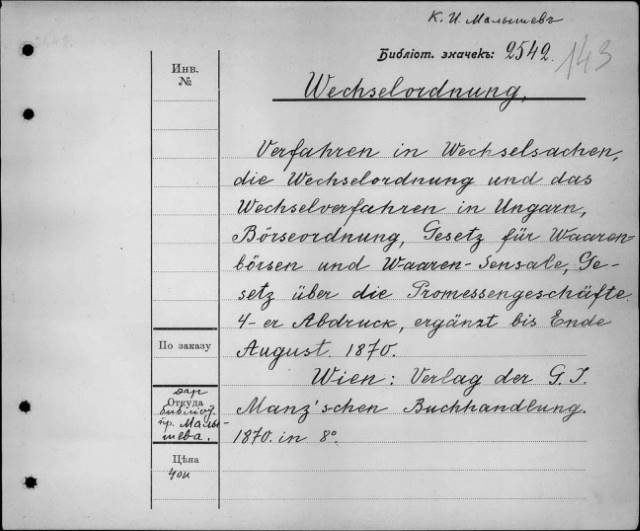 К. И. Малышевъ
Библіот. значекъ: 2542.
143
Инв.
№
Wechselordnung,
Verfahren in Wechselsachen,
die Wechselordnung und das
Wechselverfahren in Ungarn,
Börseordnung, Gesetz für Waaren-
börsen und Waaren-Sensale, Ge-
setz über die Promessengeschäfte.
4-er Abdruck, ergänzt bis Ende
August. 1870.
По заказу
Wien: Verlag der G. J.
Manz'schen Buchhandlung.
1870. in 8º
дар
Откуда
библіот.
пр. Малы-
шева.
Цѣна
40к